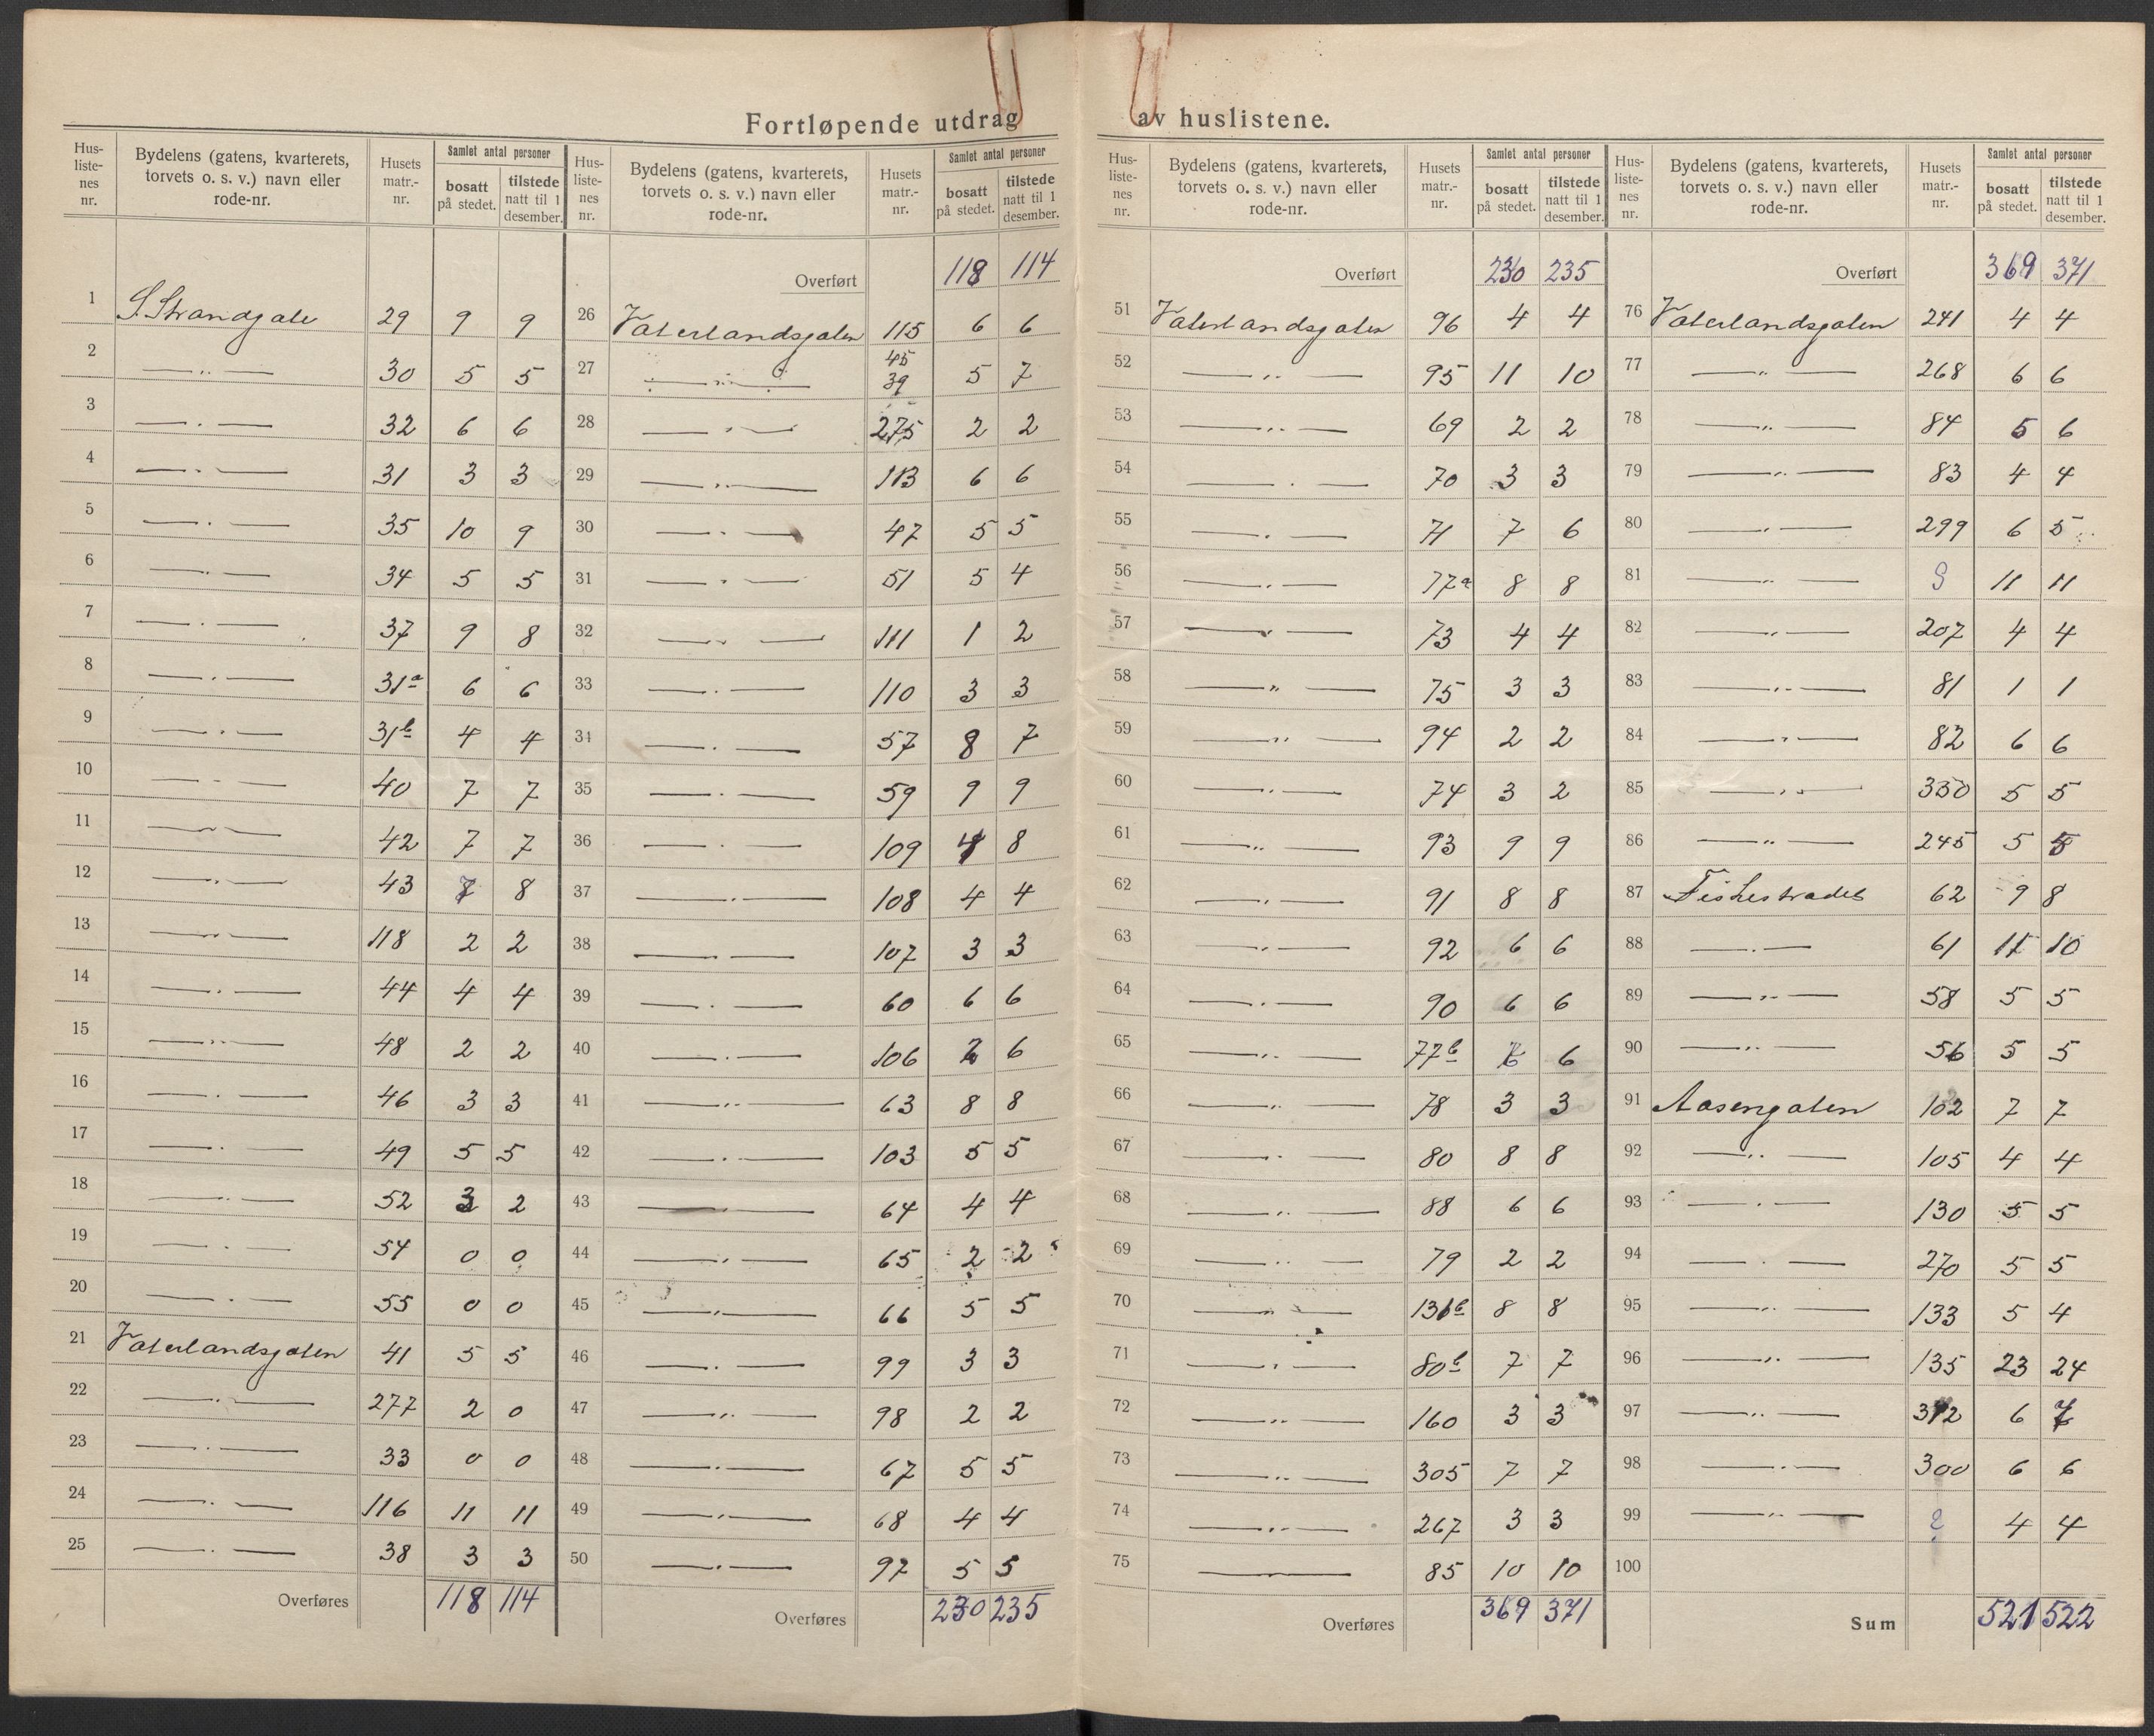 Fortløpende utdrag av huslistene.
Hus-liste-nes nr. | Bydelens (gatens, kvarterets, torvets o. s. v.) navn eller rode-nr. | Husets matr.-nr. | Samlet antal personer bosatt på stedet. | tilstede natt til 1 desember.
1 S. Strandgate 29 9 9
2 —〃— 30 5 5
3 —〃— 32 6 6
4 —〃— 31 3 3
5 —〃— 35 10 9
6 —〃— 34 5 5
7 —〃— 37 9 8
8 —〃— 31a 6 6
9 —〃— 31b 4 4
10 —〃— 40 7 7
11 —〃— 42 7 7
12 —〃— 43 7 8
13 —〃— 118 2 2
14 —〃— 44 4 4
15 —〃— 48 2 2
16 —〃— 46 3 3
17 —〃— 49 5 5
18 —〃— 52 3 2
19 —〃— 54 0 0
20 —〃— 55 0 0
21 Vaterlandsgaten 41 5 5
22 —〃— 277 2 0
23 —〃— 33 0 0
24 —〃— 116 11 11
25 —〃— 38 3 3
Overføres 118 114
Hus-liste-nes nr. | Bydelens (gatens, kvarterets, torvets o. s. v.) navn eller rode-nr. | Husets matr.-nr. | Samlet antal personer bosatt på stedet. | tilstede natt til 1 desember.
Overført 118 114
26 Vaterlandsgaten 115 6 6
27 —〃— 45 39 5 7
28 —〃— 275 2 2
29 —〃— 113 6 6
30 —〃— 47 5 5
31 —〃— 51 5 4
32 —〃— 111 1 2
33 —〃— 110 3 3
34 —〃— 57 8 7
35 —〃— 59 9 9
36 —〃— 109 8
37 —〃— 108 4 4
38 —〃— 107 3 3
39 —〃— 60 6 6
40 —〃— 106 6
41 —〃— 63 8 8
42 —〃— 103 5 5
43 —〃— 64 4 4
44 —〃— 65 2 2
45 —〃— 66 5 5
46 —〃— 99 3 3
47 —〃— 98 2 2
48 —〃— 67 5 5
49 —〃— 68 4 4
50 —〃— 97 5 5
Overføres 230 235
Hus-liste-nes nr. | Bydelens (gatens, kvarterets, torvets o. s. v.) navn eller rode-nr. | Husets matr.-nr. | Samlet antal personer bosatt på stedet. | tilstede natt til 1 desember.
Overført 230 235
51 Vaterlandsgaten 96 4 4
52 —〃— 95 11 10
53 —〃— 69 2 2
54 —〃— 70 3 3
55 —〃— 71 7 6
56 —〃— 77a 8 8
57 —〃— 73 4 4
58 —〃— 75 3 3
59 —〃— 94 2 2
60 —〃— 74 3 2
61 —〃— 93 9 9
62 —〃— 91 8 8
63 —〃— 92 6 6
64 —〃— 90 6 6
65 —〃— 77b 6
66 —〃— 78 3 3
67 —〃— 80 8 8
68 —〃— 88 6 6
69 —〃— 79 2 2
70 —〃— 8 8
71 —〃— 80b 7 7
72 —〃— 160 3 3
73 —〃— 305 7 7
74 —〃— 267 3 3
75 —— 85 10 10
Overføres 369 371
Hus-liste-nes nr. | Bydelens (gatens, kvarterets, torvets o. s. v.) navn eller rode-nr. | Husets matr.-nr. | Samlet antal personer bosatt på stedet. | tilstede natt til 1 desember.
Overført 369 371
76 Vaterlandsgaten 241 4 4
77 —〃— 268 6 6
78 —〃— 84 5 6
79 —〃— 83 4 4
80 —〃— 299 6 5
81 —〃— 11 11
82 —〃— 207 4 4
83 —〃— 81 1 1
84 —〃— 82 6 6
85 —〃— 330 5 5
86 —〃— 245 5 5
87 Fiskestrædet 62 9 8
88 —〃— 61 11 10
89 —〃— 58 5 5
90 —〃— 56 5 5
91 Aasengaten 102 7 7
92 —〃— 105 4 4
93 —〃— 130 5 5
94 —〃— 270 5 5
95 —〃— 133 5 4
96 —〃— 135 23 24
97 —〃— 312 6 7
98 —〃— 300 6 6
99 —〃— ? 4 4
100
Sum 521 522